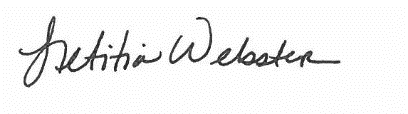 Letitia Webster